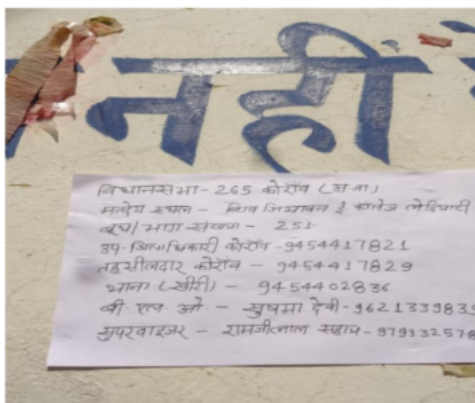 नहीं
विधानसभा - 265 कोरॉव (अ.जा)
मतदेय स्थल - शिव जियावन इ कालेज लेडियारी
बूथ/भाग संख्या - 251
उप जिलाधिकारी कोरॉव - 9454417821
तहसीलदार कोरॉव - 9454417829
थाना (खीरी) - 9454402836
बी. एल. ओ. - सुषमा देवी - 9621339839
सुपरवाइजर - रामजीलाल सहाय - 979332578